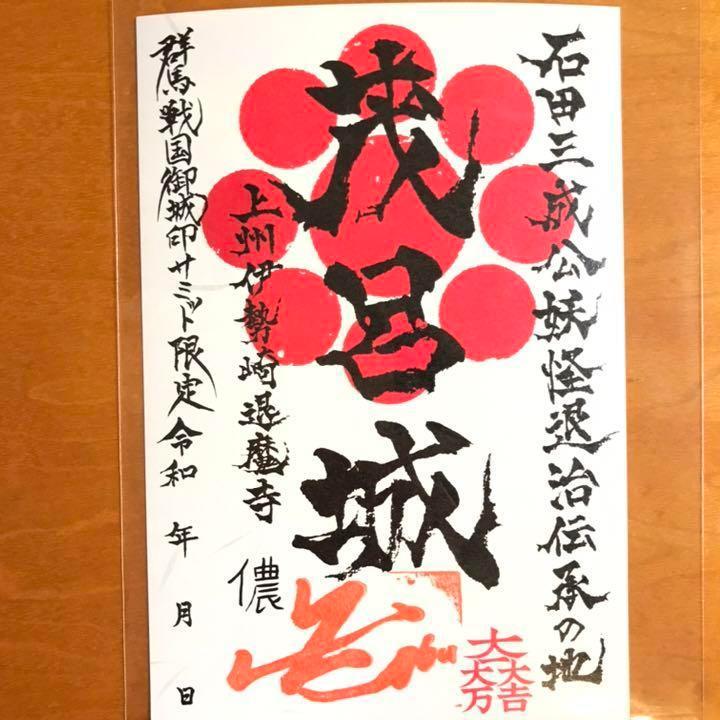 石田三成公妖怪退治伝承の地
茂呂城
上州伊勢崎退魔寺
儂
群馬戦国御城印サミット限定令和 年 月 日
大一大万大吉